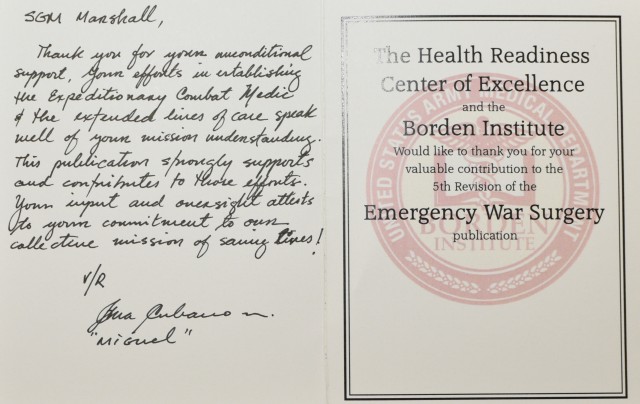 SGM Marshall,
Thank you for your unconditional
support, your efforts in establishing
the Expeditionary Combat Medic
& the extended lines of care speak
well of your mission understanding.
This publication strongly supports
and contributes to those efforts.
Your input and oversight attests
to your commitment to our
collective mission of saving lives!
V/R
Cubano
"Miguel"
The Health Readiness
Center of Excellence
and the
Borden Institute
Would like to thank you for your
valuable contribution to the
5th Revision of the
Emergency War Surgery
publication
UNITED STATES ARMY MEDICAL DEPARTMENT
BORDEN
INSTITUTE